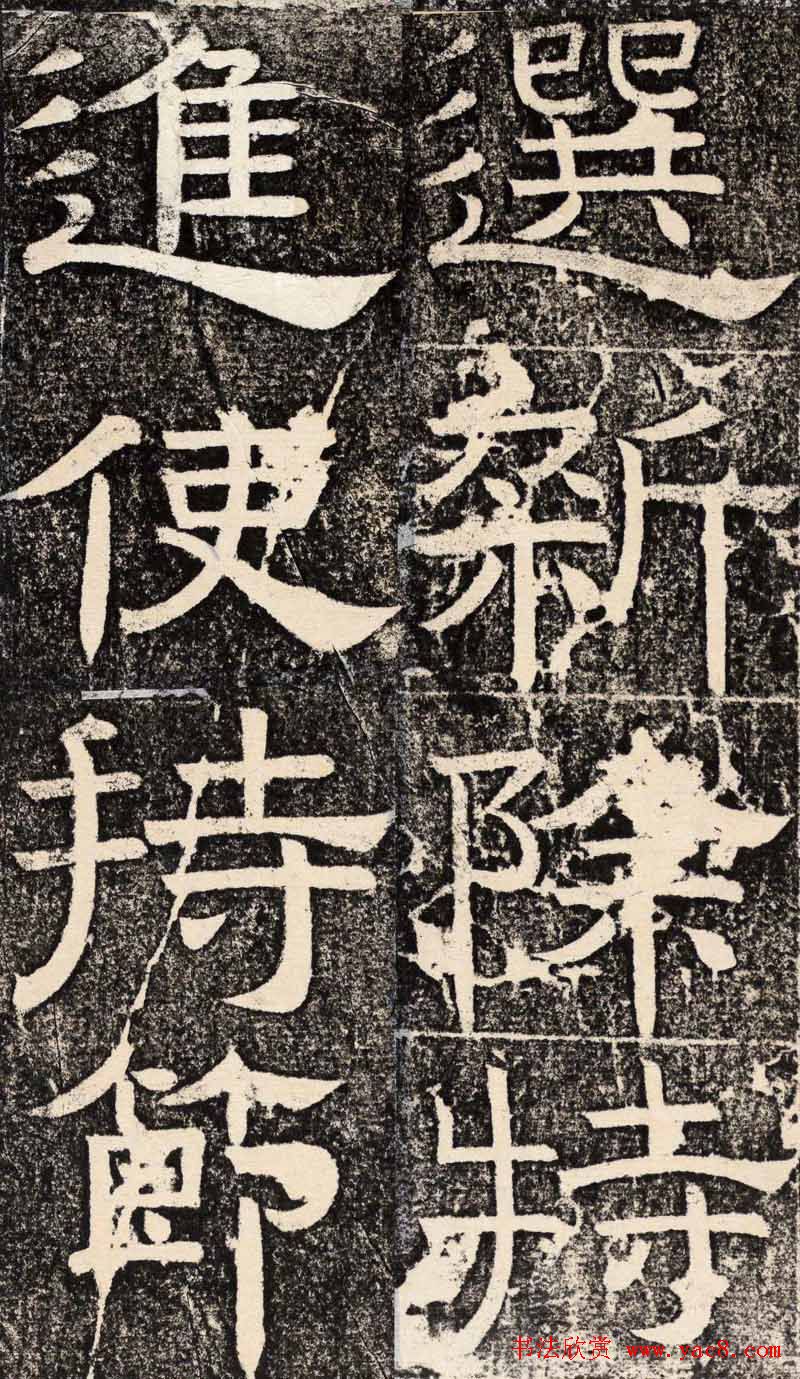 選新除特
進使持節
书法欣赏 www.yac8.com